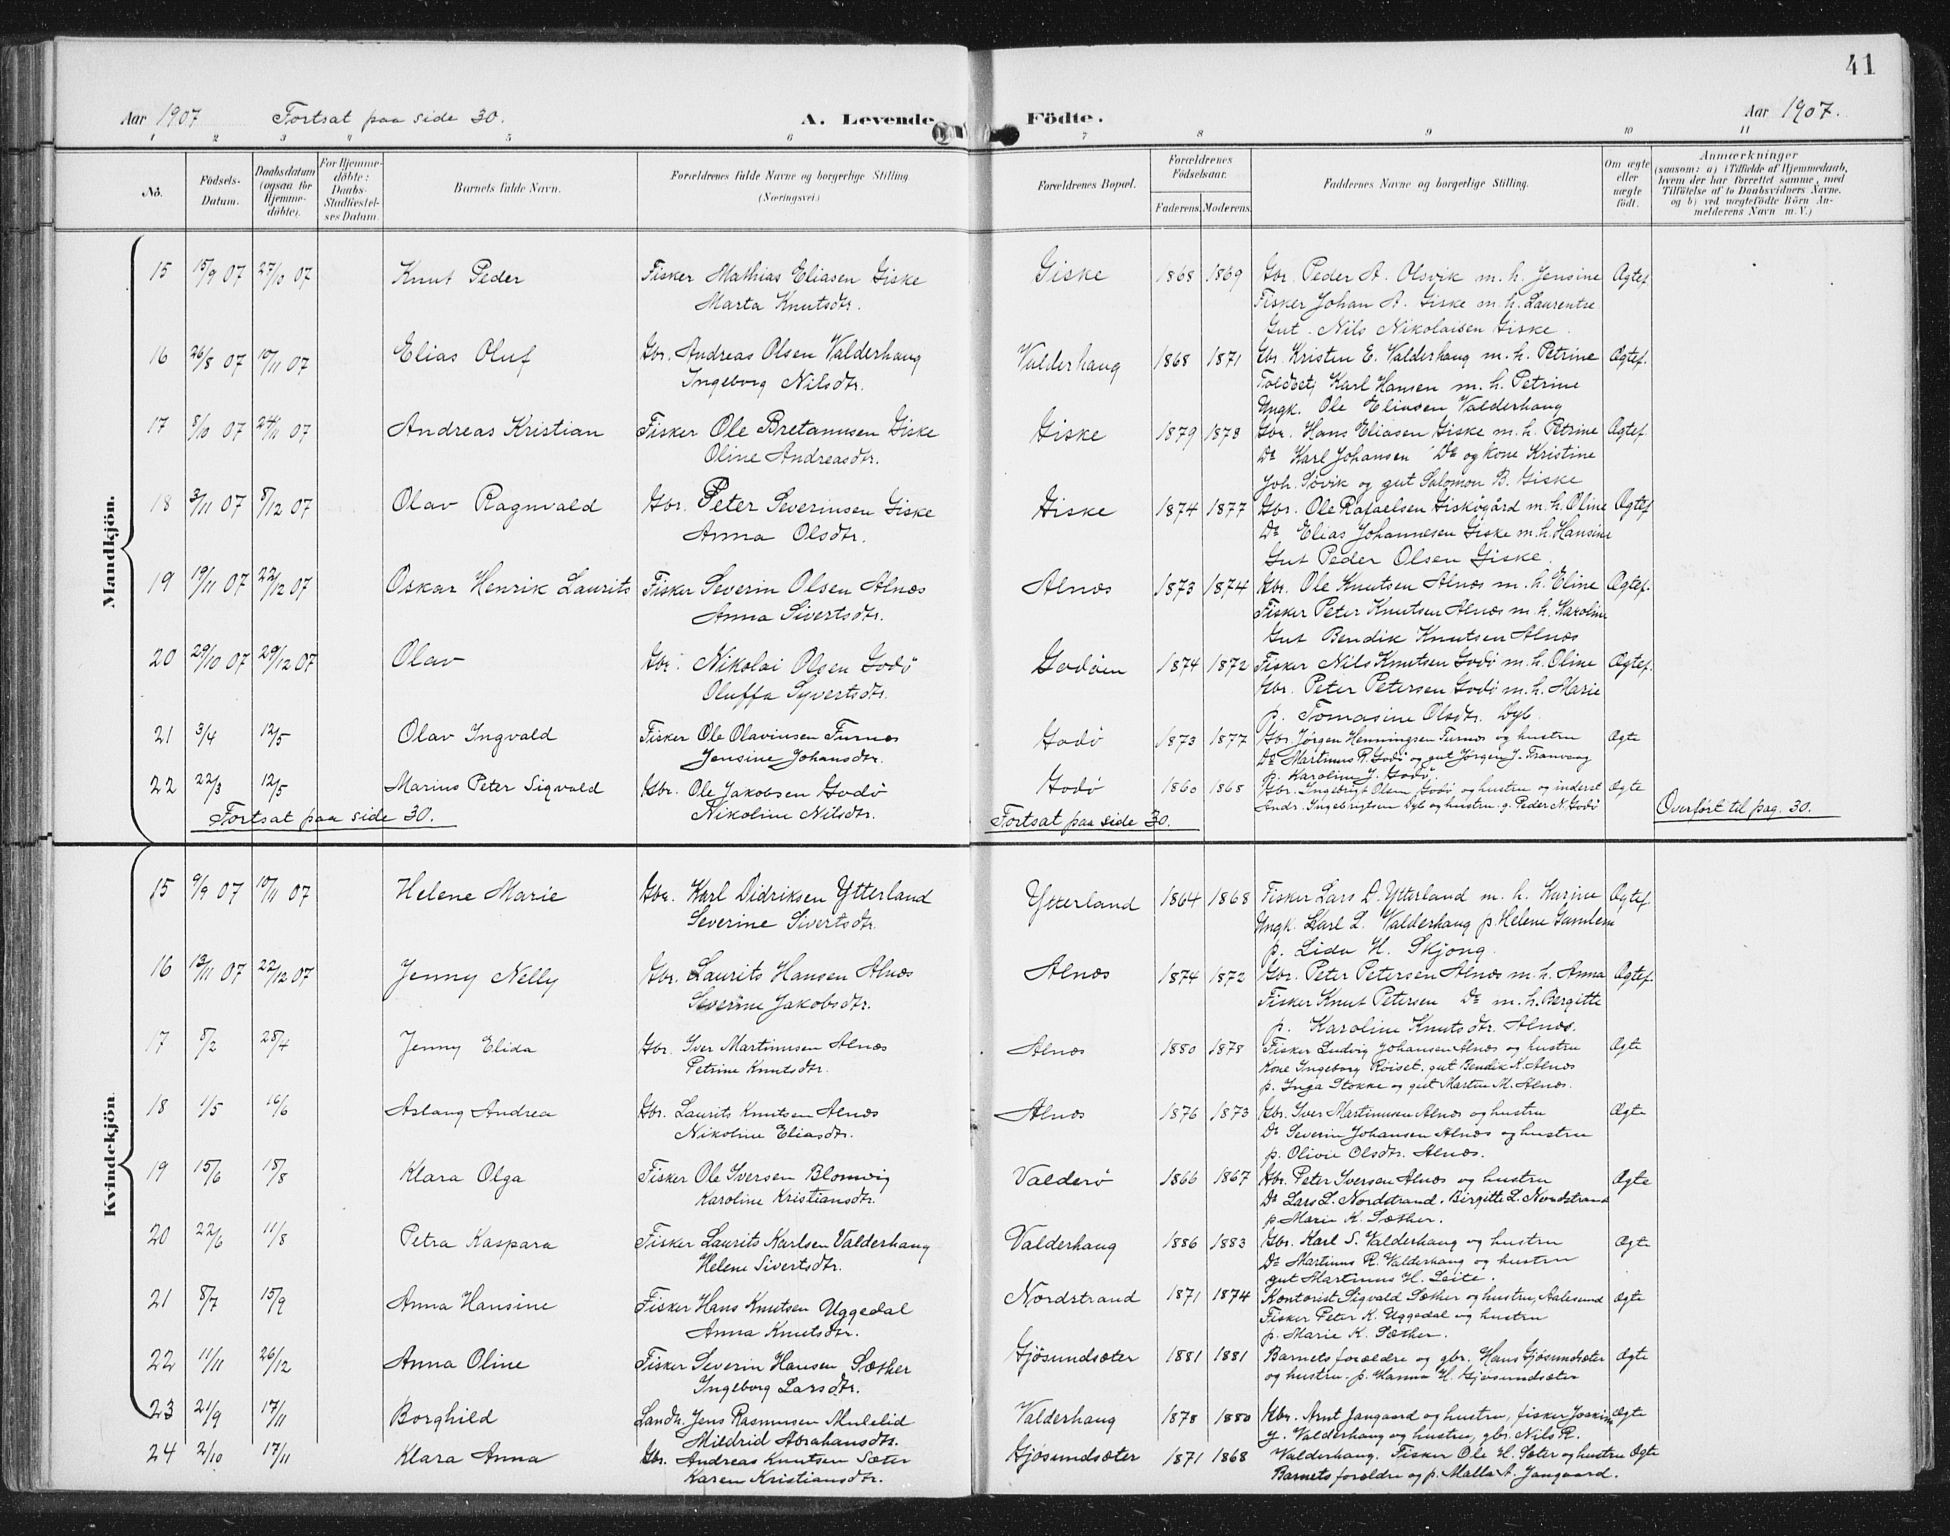 41
Aar 1907 Fortsat paa side 30. A. Levende Födte. Aar 1907.
1 2 3 4 5 6 7 8 9 10 11
No. Födsels-Datum. Daabsdatum (ogsaa for Hjemmedöbte). For Hjemmedöbte: Daabs-Stadfæstelses Datum. Barnets fulde Navn. Forældrenes fulde Navne og borgerlige Stilling (Næringsvei) Forældrenes Bopæl. Forældrenes Födselsaar. Faderens. Moderens. Faddernes Navne og borgerlige Stilling. Om ægte eller uægte födt. Anmærkninger (saasom: a) i Tilfælde af Hjemmedaab, hvem der har forrettet samme, med Tilföielse af to Daabsvidners Navne. og b) ved uægtefödte Börn Anmelderens Navn m. V.)
Mandkjön.
15 15/9 07 27/10 07 Knut Peder Fisker Mathias Eliasen Giske Giske 1868 1869 Gbr. Peder A. Olsvik m. h. Jensine Ægtef.
Marta Knutsdtr. Fisker Johan A. Giske m. h. Laurentse
Gut. Nils Nikolaisen Giske.
16 26/8 07 10/11 07 Elias Oluf Gbr. Andreas Olsen Valderhaug Valderhaug 1868 1871 Gbr. Kristen E. Valderhaug m. h. Petrine Ægtef.
Ingeborg Nilsdtr. Karl Hansen m. h. Petrine
Ungk. Ole Eliasen Valderhaug
17 8/10 07 24/11 07 Andreas Kristian Fisker Ole Bretanusen Giske Giske 1879 1878 Gbr. Hans Eliasen Giske m. h. Petrine Ægtef.
Oline Andreasdtr. Do Karl Johansen Do og kone Kristine
Joh. Sövik og gut Salomon B. Giske
18 3/11 07 8/12 07 Olav Ragnvald Gbr. Peter Severinsen Giske Giske 1874 1877 Gbr. Ole Rafaelsen Giskøgård m. h. Oline Ægtef
Anna Olsdtr. Do Elias Johannesen Giske m. h. Hansine
Gut Peder Olsen Giske.
19 19/11 07 22/12 07 Oskar Henrik Laurits Fisker Severin Olsen Alnæs Alnæs 1873 1874 Gbr. Ole Knutsen Alnæs m. h. Eline Ægtef.
Anna Sivertsdtr. Fisker Peter Knutsen Alnæs m. h. Karoline
Gut Bendik Knutsen Alnæs
20 29/10 07 29/12 07 Olav Gbr. Nikolai Olsen Godö Godöen 1874 1872 Fisker Nils Knutsen Godö m. h. Oline Ægtef.
Oluffa Syvertsdtr. Gbr. Peter Petersen Godö m. h. Marie
p. Tomasine Olsdtr. Dyb.
21 3/4 12/5 Olav Ingvald Fisker Ole Olavinsen Furnes Godö 1873 1877 Gbr. Jørgen Henningsen Furnæs og hustru Ægte
Jensine Johansdtr. Do Martinus R. Godø og gut Jørgen J. Tranvaag
p. Karoline J. Godø.
22 22/3 12/5 Marius Peter Sigvald Gbr. Ole Jakobsen Godö Godö 1860 1868 Gbr. Ingebrigt Olsen Godø og hustru og inderst Ægte
Nikoline Nilsdtr. Andr. Ingebrigtsen Dyb og hustru. g. Peder N. Godø
Fortsat paa side 30. Fortsat paa side 30. Overført til pag. 30.
Kvindekjön.
15 9/9 07 10/11 07 Helene Marie Gbr. Karl Didriksen Ytterland Ytterland 1864 1868 Fisker Lars D. Ytterland m. h. Karine Ægtef.
Severine Sivertsdtr. Ungk. Karl L. Valderhaug p. Helene Gamlem
p. Lida H. Skjong.
16 13/11 07 22/12 07 Jenny Nelly Gbr. Laurits Hansen Alnæs Alnæs 1874 1872 Gbr. Peter Petersen Alnæs m. h. Anna Ægtef.
Severine Jakobsdtr. Fisker Knut Petersen Do m. h. Bergitte
p. Karoline Knutsdtr. Alnæs.
17 8/2 28/4 Jenny Elida Gbr. Iver Martinusen Alnæs Alnæs 1880 1878 Fisker Ludvig Johansen Alnæs og hustru Ægte
Petrine Knutsdtr. Kone Ingeborg Röiset, gut Bendik K. Alnæs
p. Inga Stokke og gut Martin M. Alnæs.
18 1/5 16/6 Aslaug Andrea Gbr. Laurits Knutsen Alnæs Alnæs 1876 1873 Gbr. Iver Martinusen Alnæs og hustru Ægte
Nikoline Eliasdtr. Do Severin Johansen Alnæs og hustru
p. Olivie Olsdtr. Alnæs.
19 15/6 18/8 Klara Olga Fisker Ole Iversen Blomvig Valderö 1866 1867 Gbr. Peter Iversen Alnæs og hustru Ægte
Karoline Kristiansdtr. Do Lars L. Nordstrand. Birgitte L. Nordstrand
p. Marie K. Sæther.
20 22/6 11/8 Petra Kaspara Fisker Laurits Karlsen Valderhaug Valderhaug 1886 1883 Gbr. Karl S. Valderhaug og hustru Ægte
Helene Sivertsdtr. Do Martinus R. Valderhaug og hustru
gut Martinus H. Leite.
21 8/7 15/9 Anna Hansine Fisker Hans Knutsen Uggedal Nordstrand 1871 1874 Kontorist Sigvald Sæther og hustru, Aalesund Ægte
Anna Knutsdtr. Fisker Peter K. Uggedal og hustru
p. Marie K. Sæther.
22 11/11 26/12 Anna Oline Fisker Severin Hansen Sæther Gjösundsæter 1881 1881 Barnets forældre og gbr. Hans Gjösundsæter Ægte
Ingeborg Larsdtr. og hustru. p. Hanna H. Gjøsundsæter
23 21/9 17/11 Borghild Landh. Jens Rasmusen Mulelid Valderhaug 1878 1880 Gbr. Arnt Jangaard og hustru, fisker Joakim Ægte
Mildrid Abrahamsdtr. J. Valderhaug og hustru, gbr. Nils R.
24 2/10 17/11 Klara Anna Gbr. Andreas Knutsen Sæter Gjösundsæter 1871 1868 Valderhaug. Fisker Ole H. Sæter og hustru Ægte
Karen Kristiansdtr. Barnets forældre og p. Malla A. Jangaard.